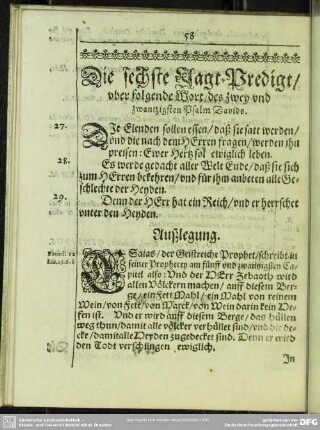 58
Die sechste Jagt-Predigt/
vber folgende Wort/ des zwey vnd
zwantzigsten Psalm Davids.
27.
DJe Elenden sollen essen/ daß sie satt werden/
vnd die nach dem HErren fragen/ werden ihn
preisen: Ewer Hertz sol ewiglich leben.
28.
Es werde gedacht aller Welt Ende/ daß sie sich
zum HErren bekehren/ vnd für ihm anbeten alle Ge-
schlechte der Heyden.
29.
Denn der HErr hat ein Reich/ vnd er herrschet
vnter den Heyden.
Außlegung.
ESaias/ der Geistreiche Prophet/ schreibt in
seiner Prophecey am fünff vnd zwantzigsten Ca-
pitel also: Vnd der HErr Zebaoth wird
allen Völckern machen/ auff diesem Ber-
ge/ ein fett Mahl/ ein Mahl von reinem
Wein/ von Fett/ von Marck/ von Wein darin kein He-
fen ist. Vnd er wird auff diesem Berge/ das hüllen
weg thun/ damit alle völcker verhüllet sind/ vnd die de-
cke/ damit alle Heyden zugedecket sind. Denn er wird
den Todt verschlingen ewiglich.
Jn